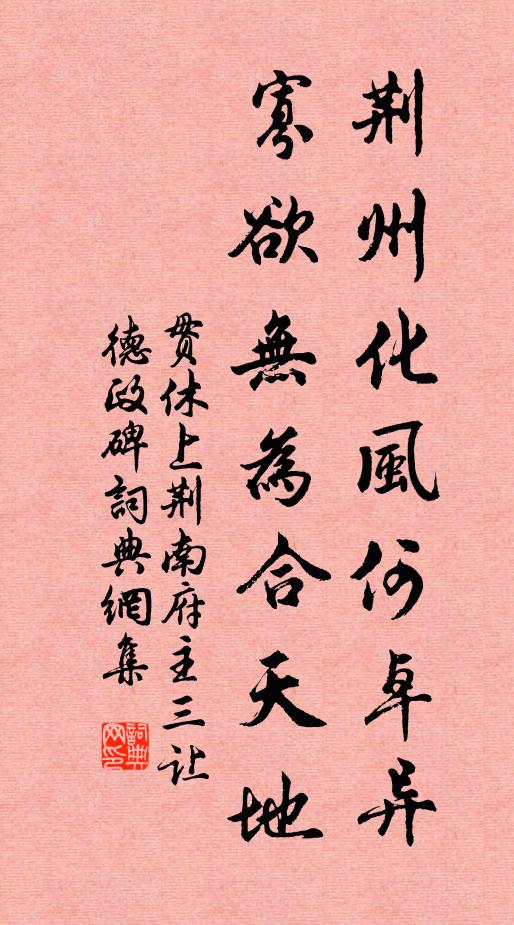 荆州化風何卓异
寡欲無為合天地
贯休上荆南府主三让
德政碑詞典網集
詞典網印